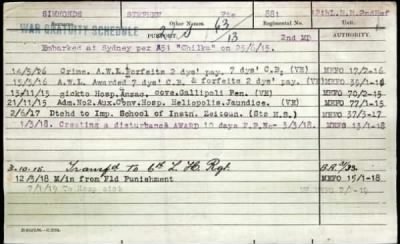 SIMMONDS STEPHEN Pte 881 12thL.H.R.2ndRef
WAR GRATUITY SCHEDULE 63/13 Regimental No. 1
PURPORT. 2nd MD AUTHORITY.
Embarked at Sydney per A51 "Chilka" on 25/6/15.
16/5/16 Crime. A.W.L. forfeits 2 dys' pay. 7 dys' C.B, (VE) MEFO 17/2-16
15/5/16 A.W.L. Awarded 7 dys' C.B. & forfeits 2 dys' pay. (VE) MEFO 35/1-16
15/11/15 sickto Hosp. Anzac. cove. Gallipoli Pen. (VE) MEFO 70/2-15
21/11/15 Adm.No2.Aux.Conv.Hosp. Heliopolis.Jaundice. (VE) MEFO 77/1-15
2/6/17 Dtchd to Imp. School of Instn. Zeitoun. MEFO 35/1-17
1/3/18. Creating a disturbance AWARD 10 days F.P.No- 3/3/18. MEFO 13/1-18
3.10.15. Transf'd To 6th L H Rgt.
12/3/18 M/in from Fld Punishment MEFO 15/1-18
7/1/19 To Hosp sick